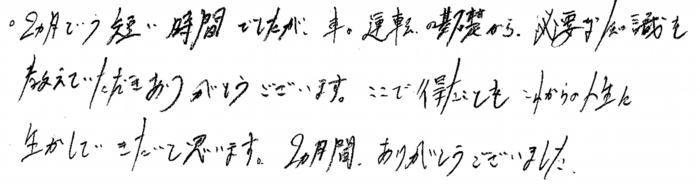 。2ヵ月という短い時間でしたが、車の運転の基礎から、必要な知識を
教えていただきありがとうございます。ここで得たことをこれからの人生に
生かしていきたいと思います。2ヵ月間、ありがとうございました。